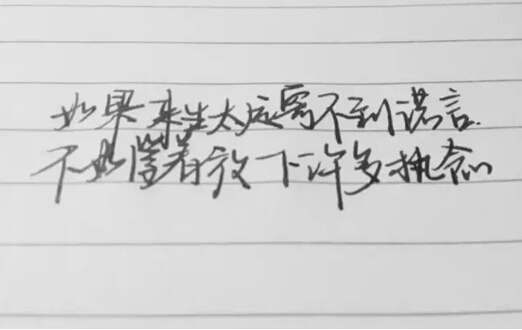 如果来生太远寄不到诺言
不如学着放下许多执念